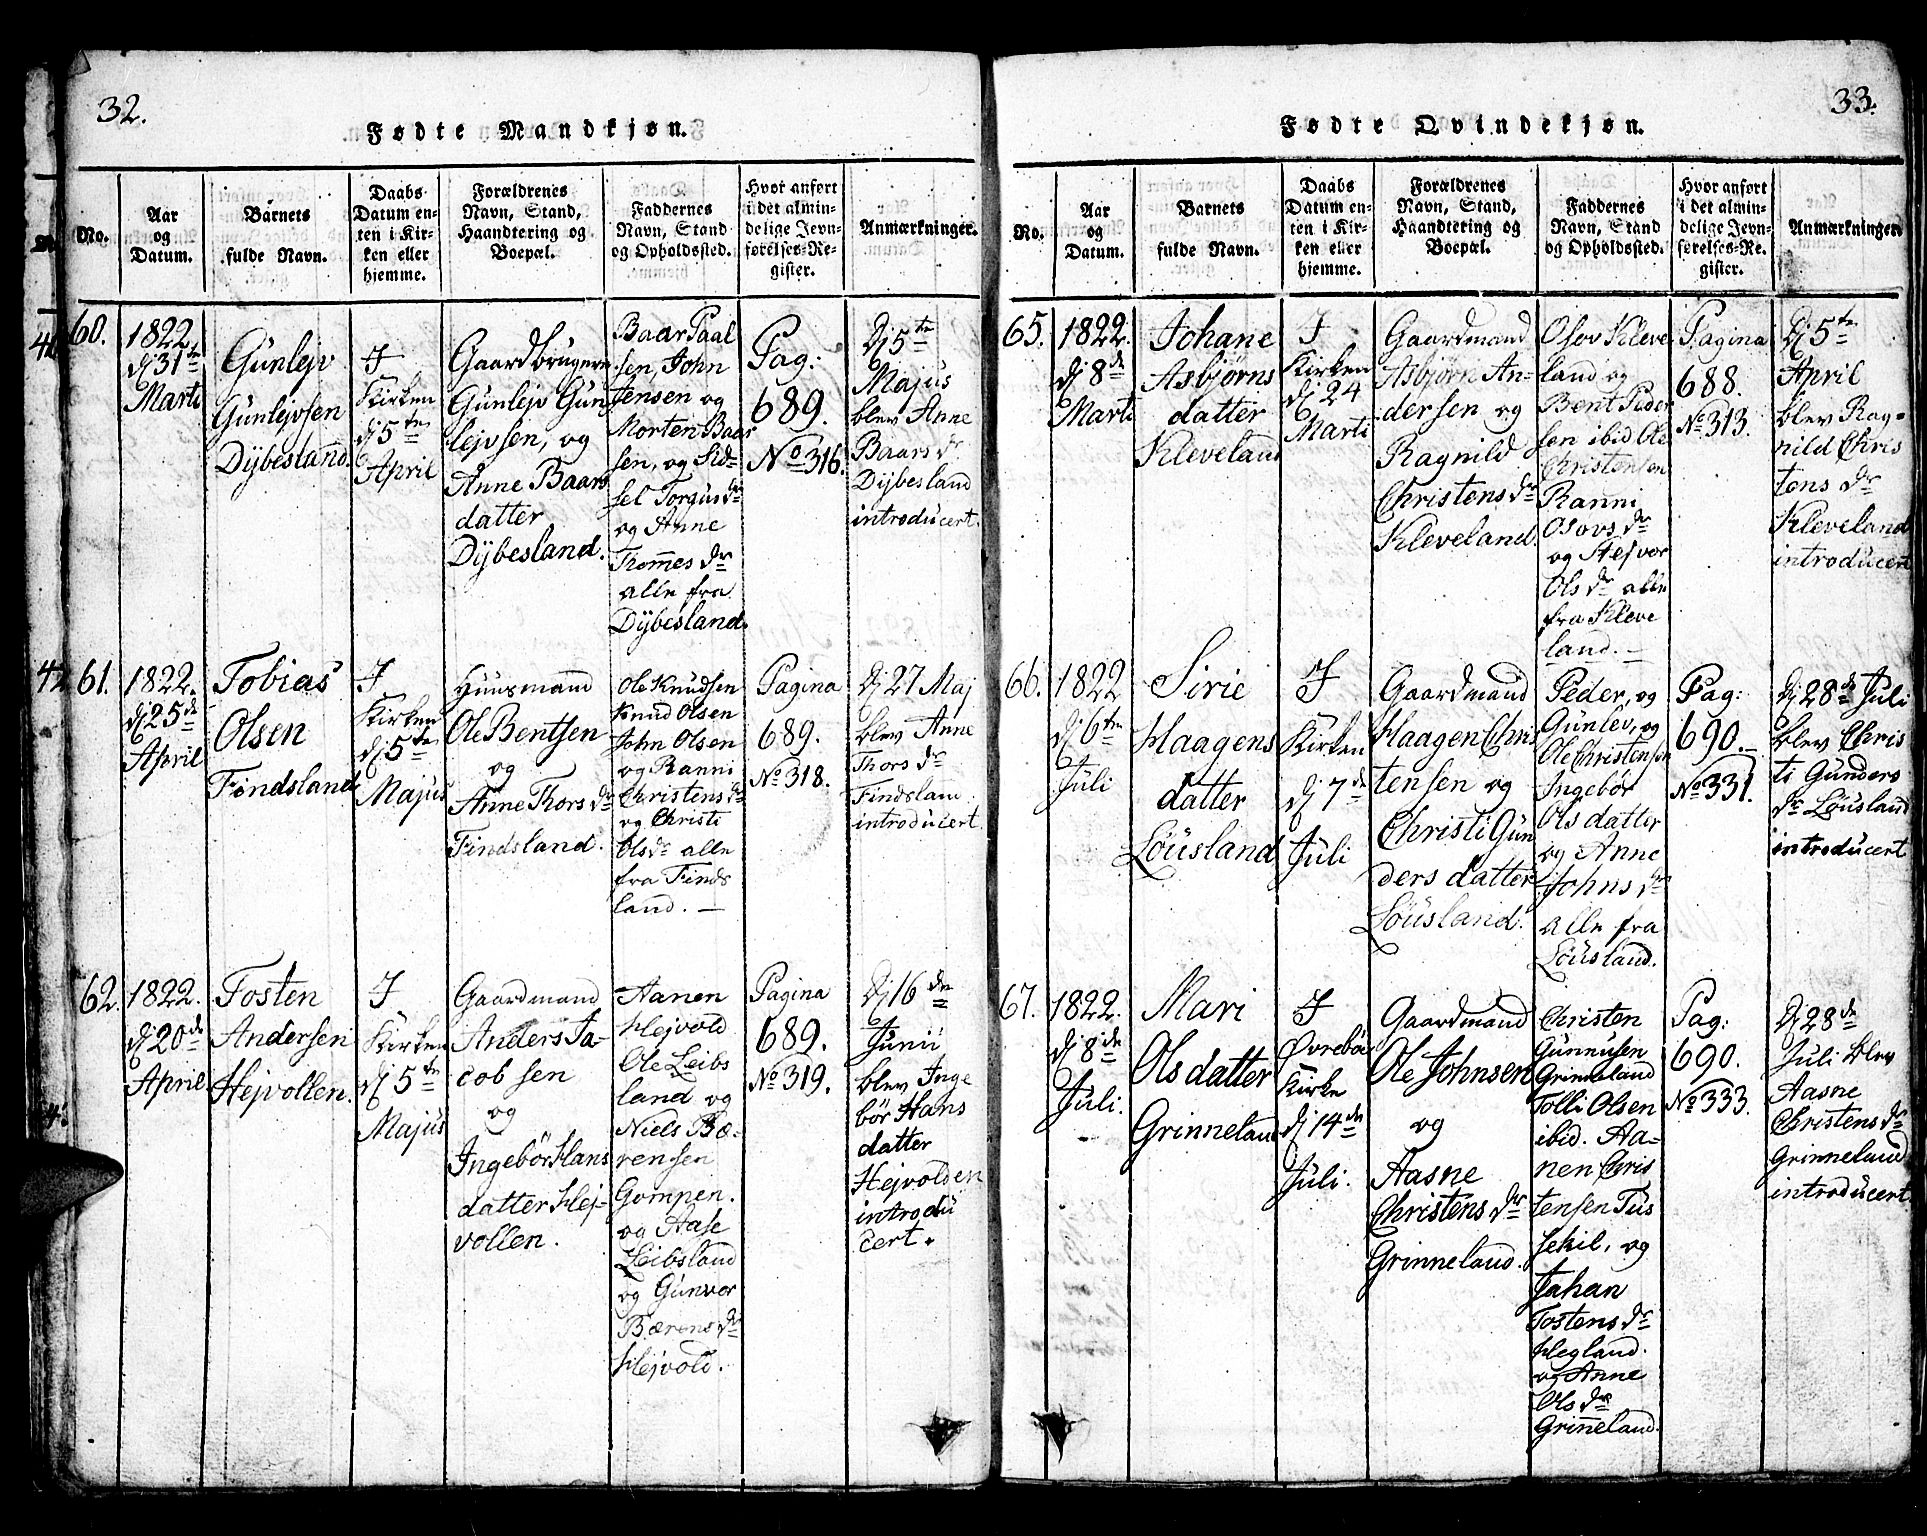 32.
Fødte Mandkjøn.
No.
Aar
og
Datum.
Barnets
fulde Navn.
Daabs
Datum en-
ten i Kir-
ken eller
hjemme.
Forældrenes
Navn, Stand,
Haandtering og
Boepæl.
Faddernes
Navn, Stand
og Opholdssted.
Hvor anført
i det almin-
delige Jevn-
førelses-Re-
gister.
Anmærkninger.
60.
1822.
dj 31te
Marti
Gunlejv
Gunlejvsen
Dÿbesland.
I
Kirken
dj 5te
April
Gaardbrugern
Gunlejv Gun
lejvsen, og
Anne Baars
datter
Dÿbesland.
Baar Paal
sen, John
Jensen og
Morten Baar
sen, og Sid-
sel Torgus dr
og Anne
Trom̅es dr
alle fra
Dÿbesland.
Pag:
689.
No 316.
Dj 5te
Majus
blev Anne
Baars dr
Dÿbesland
introducert.
61.
1822.
dj 25de
April
Tobias
Olsen
Findsland
I
Kirken
dj 5te
Majus
Huusmand
Ole Bentsen
og
Anne Thors dr
Findsland.
Ole Knudsen
Knud Olsen
John Olsen
og Ranni
Christens dr
og Christi
Ols dr alle
fra Finds
land. —
Pagina
689.
No 318.
Dj 27 Maj
blev Anne
Thors dr
Findslan
introducert.
62.
1822.
dj 20de
April
Tosten
Andersen
Hejvollen.
I
Kirken
dj 5te
Majus
Gaardmand
Anders Ja-
cobsen
og
Ingebør Hans
datter Hej-
vollen.
Aanen
Hejvold
Ole Leibs
land og
Niels Bæ-
rensen
Gompen.
og Aase
Leibsland
og Gunvor
Bærens dr
Hejvold.
Pagina
689.
No 319.
Dj 16de
Junii
blev Inge
bør Hans
datter
Hejvolden
introdu
cert.
33.
Fødte Qvindekjøn.
No.
Aar
og
Datum.
Barnets
fulde Navn.
Daabs
Datum en-
ten i Kir-
ken eller
hjemme.
Forældrenes
Navn, Stand,
Haandtering og
Boepæl.
Faddernes
Navn, Stand
og Opholdssted.
Hvor anført
i det almin-
delige Jevn-
førelses-Re-
gister.
Anmærkninger
65.
1822.
dj 8de
Marti
Johane
Asbjørns
datter
Kleveland
I
Kirken
dj 24
Marti
Gaardmand
Asbjørn An-
dersen og
Ragnild
Christens dr
Kleveland.
Osov Kleve
land og
Bent Peder
sen ibid Ole
Christensen
Ranni
Osovs dr
og Stejvor
Ols dr alle
fra Kleve
land. —
Pagina
688.
No 313.
Dj 5te
April
blev Rag-
nild Chris
tens dr
Kleveland
introducert
66.
1822
dj 6te
Juli
Sirie
Haagens
datter
Løusland
I
Kirken
dj 7de
Juli
Gaardmand
Haagen Chris
tensen og
Christi Gun
ders datter
Løusland.
Peder, og
Gunlev, og
Ole Christensen
Ingebør
Ols datter
og Anne
Johns dr
alle fra
Løusland.
Pag:
690.
No 331.
Dj 28de Juli
blev Chris
ti Gunders
dr Løusland
introducert
67.
1822.
dj 8de
Juli.
Mari
Ols datter
Grinneland
I
Øvrebø
Kirke
dj 14de
Juli.
Gaardmand
Ole Johnsen
og
Aasne
Christens dr
Grinneland.
Christen
Gunnusen
Grinneland
Tolli Olsen
ibid. Aa-
nen Chris
tensen Tus
sekil, og
Jahan
Tostens dr
Hegland.
og Anne
Ols dr
Grin̅eland.
Pag:
690.
No 333.
Dj 28de
Juli blev
Aasne
Christens dr
Grinneland
introducert.